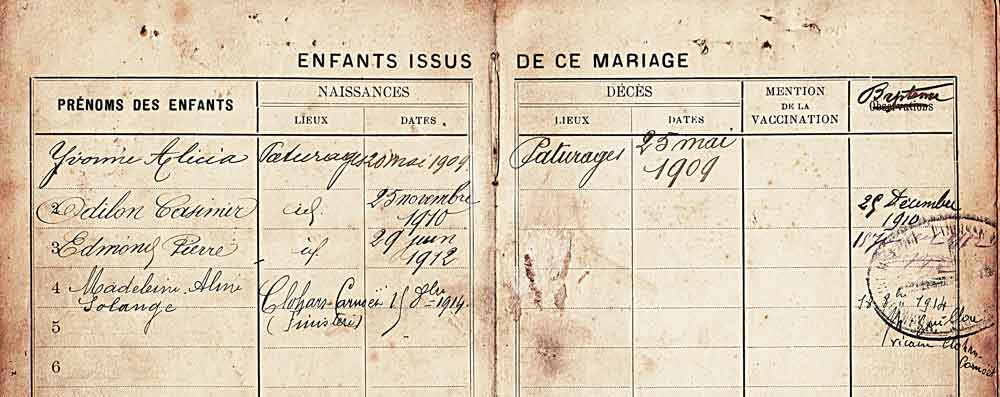 ENFANTS ISSUS DE CE MARIAGE
PRÉNOMS DES ENFANTS
NAISSANCES
LIEUX DATES
DÉCÈS
LIEUX DATES
MENTION
DE LA
VACCINATION
Baptême
Observations
Yvonne Alicia Paturages 20 mai 1909 Paturages 25 mai
1909
2 Odilon Casimir id. 25 novembre
1910
25 Décembre
1910
3 Edmond Pierre id. 29 juin
1912
4 Madeleine Aline
Solange
Clohars-Carnoët
(Finistère)
15 8bre 1914
1914
5
6
vicaire Clohars-
Carnoët